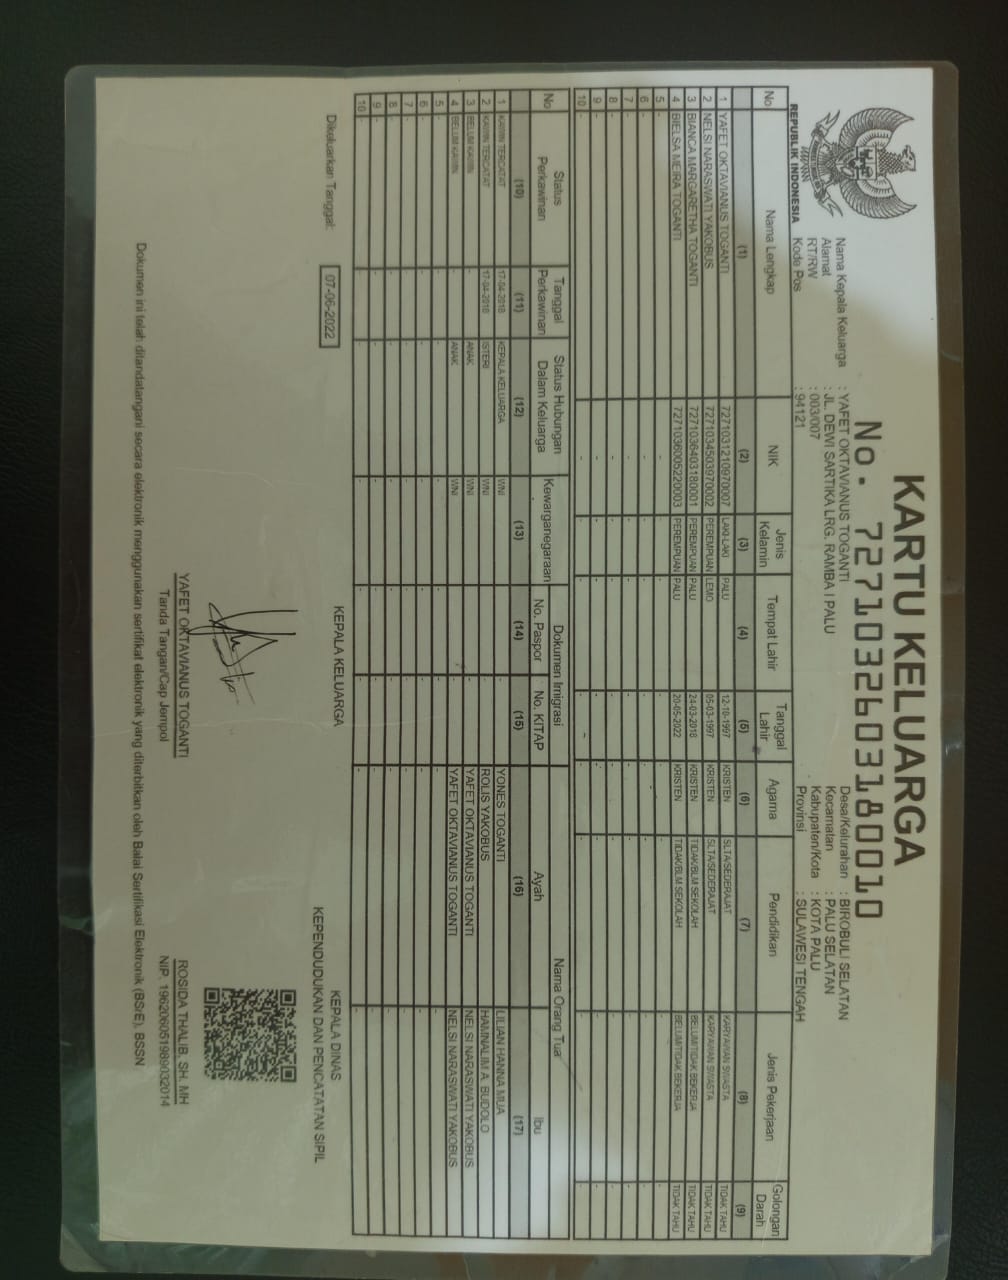 KARTU KELUARGA
No. 7271032603180010
REPUBLIK INDONESIA
Nama Kepala Keluarga : YAFET OKTAVIANUS TOGANTI
Alamat : JL. DEWI SARTIKA LRG. RAMBA I PALU
RT/RW : 003/007
Kode Pos : 94121
Desa/Kelurahan : BIROBULI SELATAN
Kecamatan : PALU SELATAN
Kabupaten/Kota : KOTA PALU
Provinsi : SULAWESI TENGAH
No Nama Lengkap NIK Jenis Kelamin Tempat Lahir Tanggal Lahir Agama Pendidikan Jenis Pekerjaan Golongan Darah
(1) (2) (3) (4) (5) (6) (7) (8) (9)
1 YAFET OKTAVIANUS TOGANTI 7271031210970007 LAKI-LAKI PALU 12-10-1997 KRISTEN SLTA/SEDERAJAT KARYAWAN SWASTA TIDAK TAHU
2 NELSI NARASWATI YAKOBUS 7271034503970002 PEREMPUAN LEMO 05-03-1997 KRISTEN SLTA/SEDERAJAT KARYAWAN SWASTA TIDAK TAHU
3 BIANCA MARGARETHA TOGANTI 7271036403180001 PEREMPUAN PALU 24-03-2018 KRISTEN TIDAK/BLM SEKOLAH BELUM/TIDAK BEKERJA TIDAK TAHU
4 BIELSA MEIRA TOGANTI 7271036005220003 PEREMPUAN PALU 20-05-2022 KRISTEN TIDAK/BLM SEKOLAH BELUM/TIDAK BEKERJA TIDAK TAHU
5 - - - - - - - - -
6 - - - - - - - - -
7 - - - - - - - - -
8 - - - - - - - - -
9 - - - - - - - - -
10 - - - - - - - - -
No Status Perkawinan Tanggal Perkawinan Status Hubungan Dalam Keluarga Kewarganegaraan Dokumen Imigrasi Nama Orang Tua
No. Paspor No. KITAP Ayah Ibu
(10) (11) (12) (13) (14) (15) (16) (17)
1 KAWIN TERCATAT 17-04-2018 KEPALA KELUARGA WNI - - YONES TOGANTI LILIAN HANNA MUA
2 KAWIN TERCATAT 17-04-2018 ISTERI WNI - - ROLIS YAKOBUS HAMNALIM A. BUDOLO
3 BELUM KAWIN - ANAK WNI - - YAFET OKTAVIANUS TOGANTI NELSI NARASWATI YAKOBUS
4 BELUM KAWIN - ANAK WNI - - YAFET OKTAVIANUS TOGANTI NELSI NARASWATI YAKOBUS
5 - - - - - - - -
6 - - - - - - - -
7 - - - - - - - -
8 - - - - - - - -
9 - - - - - - - -
10 - - - - - - - -
Dikeluarkan Tanggal: 07-06-2022
KEPALA KELUARGA
YAFET OKTAVIANUS TOGANTI
Tanda Tangan/Cap Jempol
KEPALA DINAS
KEPENDUDUKAN DAN PENCATATAN SIPIL
ROSIDA THALIB, SH. MH
NIP. 196206051989032014
Dokumen ini telah ditandatangani secara elektronik menggunakan sertifikat elektronik yang diterbitkan oleh Balai Sertifikasi Elektronik (BSrE), BSSN